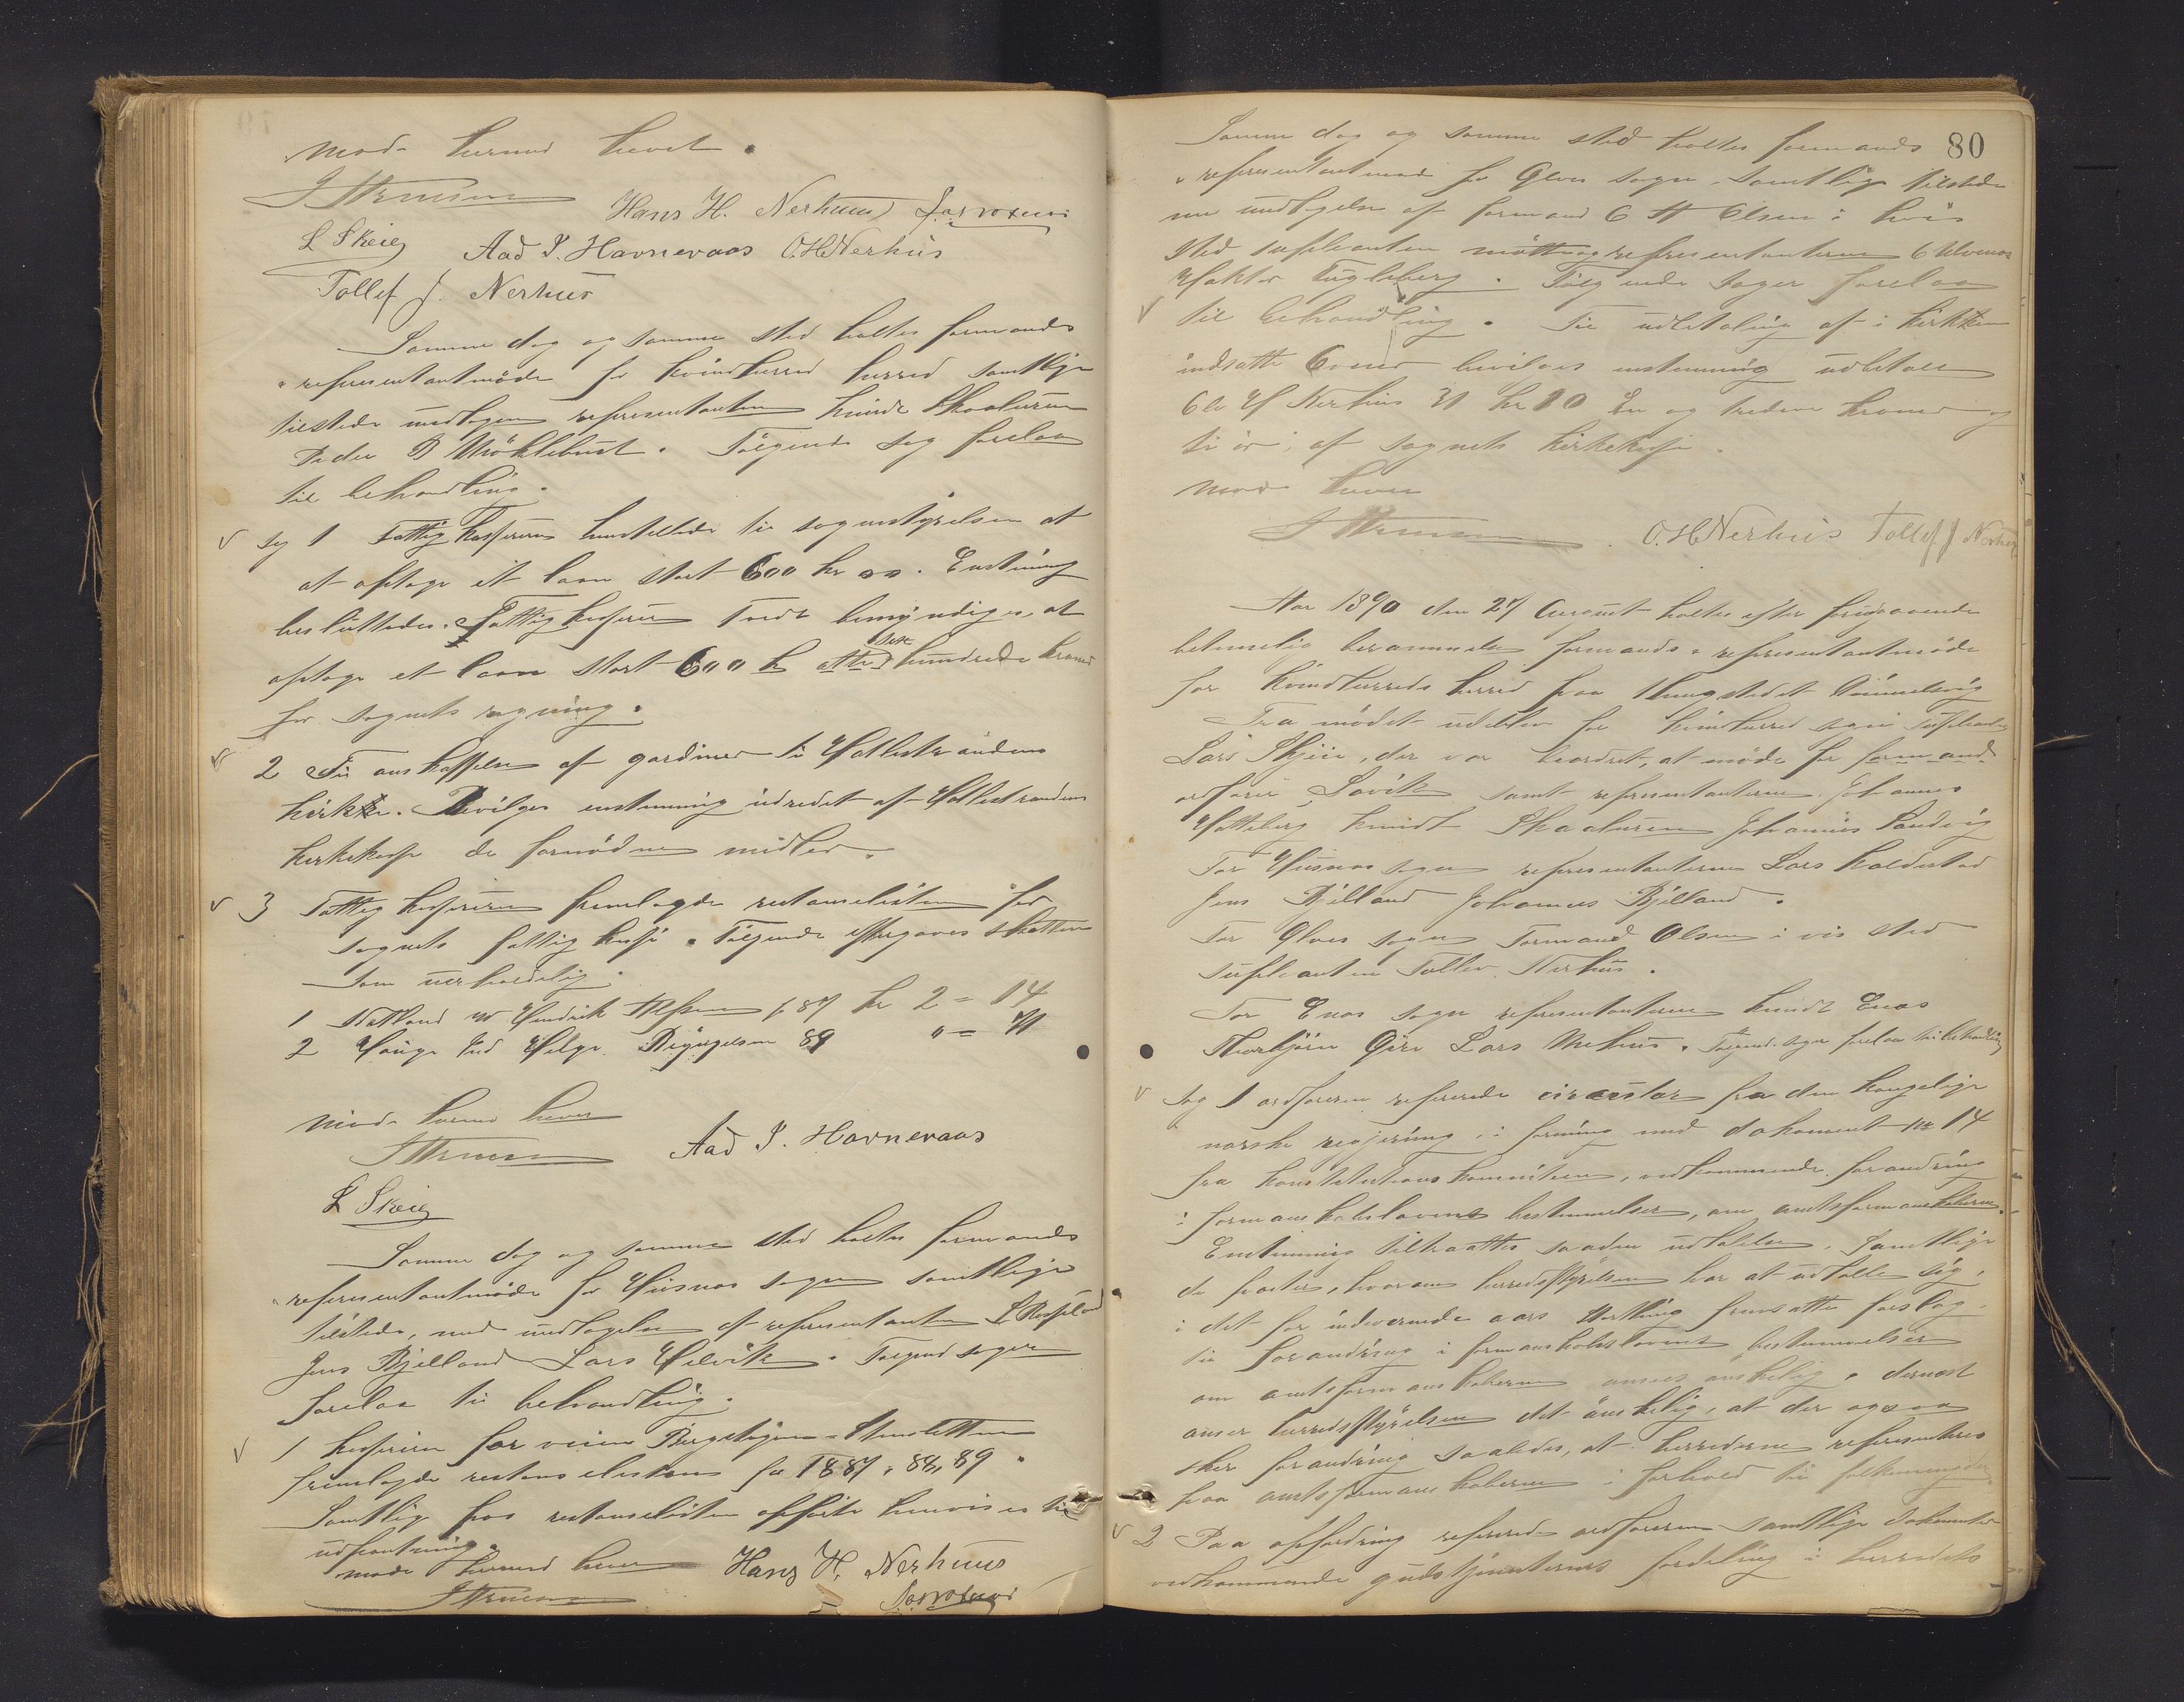 møde hermed hevet.
Hans H. Nerhuus
L Skeie Aad J. Havnevaas O.H. Nerhus
Tollef J. Nerhus
Samme dag og samme sted holtes formands
representantmøde for Kvindherred herred samtlige
tilstede undtagen representanten Knudt Skaaluren
Peder B Myklebust. Følgende sag forelaa
til behandling.
Sag 1 Fattigkasserern henstillede til sognestyrelsen at
at optage et laan stort 600 kr 00. Enstemig
besluttedes. Fattigkasserer Tvedt bemyndiges at
optage et laan stort 600 kr seks hundrede kroner
for sognets regning.
2 Til anskaffelse af gardiner til Holllestrandens
kirke. Bevilges enstemmig udredet af Holllestrandens
kirkekasse de fornødne midler.
3 Fattigkasserern fremlagde restanselisten for
sognets fattigkasse. Følgende eftergaves skatten
som uerholdelig.
1 Natland Hendrik f 87 kr 2 = 14
2 Hauge Ind Helge 89 " = 71
møde hermed hevet
Aad J. Havnevaas
L Skeie
Samme dag og samme sted holtes formands
representantmøde for Husnæs sogn samtlige
tilstede, med undtagelse af representanten
Jens Bjelland Lars Helvik. Følgende sager
forelaa til behandling.
1 Kasserern for veien
fremlagde restanselisten for 1887, 88, 89.
Samtlige paa restanselisten opførte henvises til
udpantning.
møde hermed hevet Hans H. Nerhuus
80
Samme dag og samme sted holtes formands
representantmøde for Ølves sogn, samtlige tilstede
med undtagelse af formand O H Olsen i hvis
sted suppleanten møtte og representanterne
Fugleberg. Følgende sager forelaa
til behandling. Til udbetaling af i kirken
indsatte ovner bevilges enstemmig udbetalt
Ole H Nerhus 31 kr 10 En og tredeve kroner og
ti ør, af sognets kirkekasse.
møde hevet
O.H. Nerhus Tollef J Nerhus
Aar 1890 den 27 August holtes efter foregaaende
betimelig berammelse formands representantmøde
for Kvindherreds herred paa thingstedet
Fra mødet udeblev for Kvindherred sogn supleant
Lars Skjeie, der var beordret at møde for formand
ordfører Løvik samt representanterne Johannes
Hatteberg Knudt Skaaluren Johannes Sandvig
For Husnæs sogn representanterne Lars Haldestad
Jens Bjelland Johannes Bjelland.
For Ølves sogn Formand Olsen i vis sted
supleanten Tollev Nerhus.
For Enæs sogn representanterne Knudt Enæs
Thorbjørn Gjere Lars Mehus. Følgende sager forelaa til behandling
Sag 1 ordføreren refererede circulær fra den kongelige
norske regjering i forening med dokument № 14
fra konstitutions komiteen, vedkommende forandring
i formanskabslovens bestemmelser, om amtsformanskaberne.
Enstemmig tiltraattes saaden udtalelse. Samtlige
de poster, hvorom herredsstyrelsen har at udtalle sig,
i det for indeverende aars Storthing fremsatte forslag
til forandring i formanskabslovens bestemmelser
om amtsformanskaberne ansees ønskelig. dernæst
anser herredsstyrelsen det ønskelig, at der ogsaa
sker forandring saaledes, at herrederne representeres
paa amtsformanskaberne i forhold til folkemengden.
2 Paa opfordring refererede ordføreren samtlige dokumenter
vedkommende gudstjenesternes fordeling i herredets